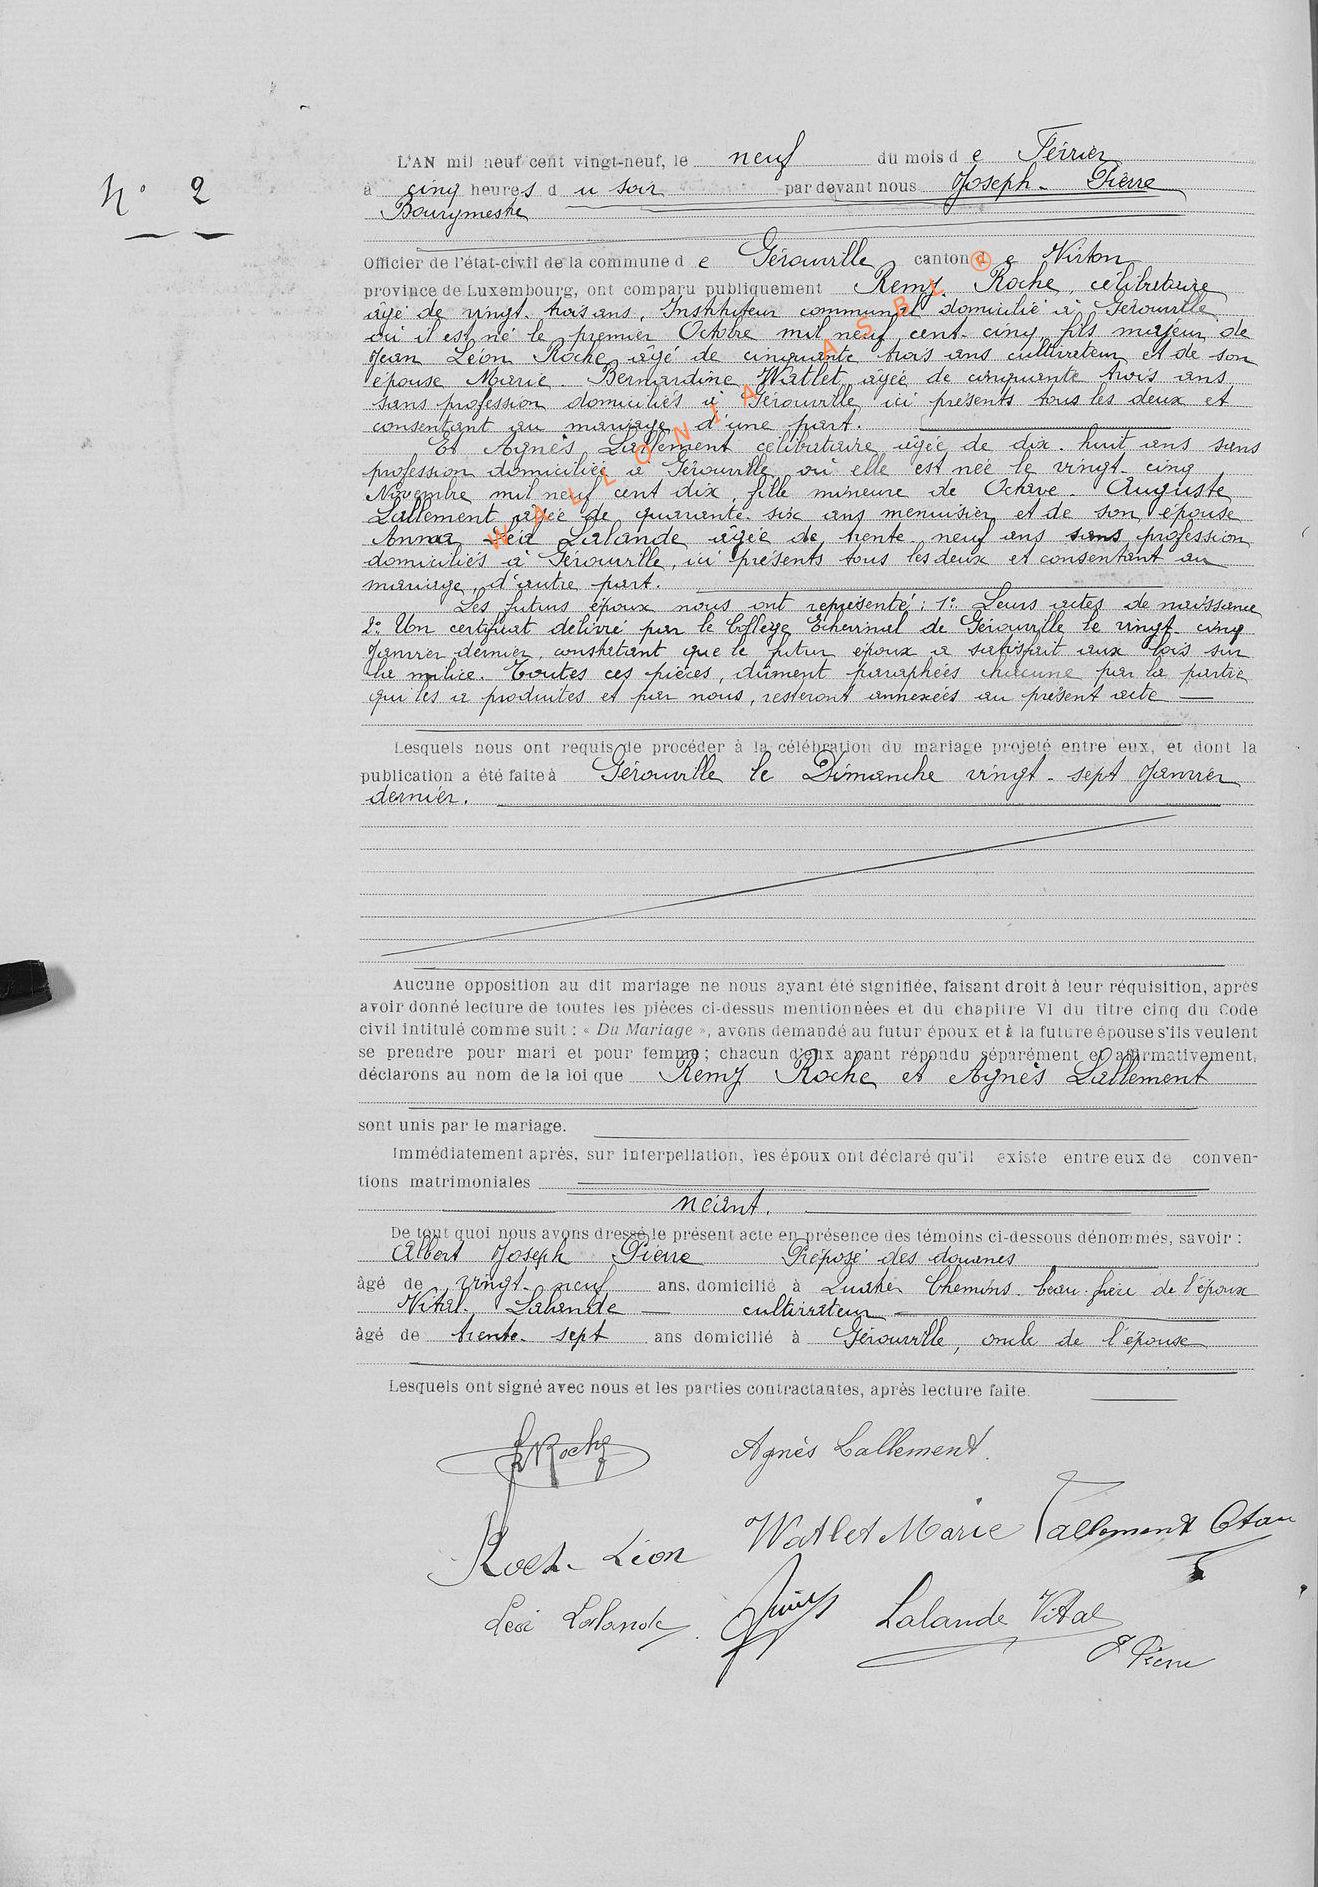 N° 2
L'AN mil neuf cent vingt-neuf, le neuf du mois d e Février
à cinq heures d u soir par devant nous Joseph - Pierre
Bourgmestre
Officier de l'état-civil de la commune d e Gérouville canton d e Virton
province de Luxembourg, ont comparu publiquement Remy Roche, célibataire
âgé de vingt-trois ans, Instituteur communal domicilié à Gérouville
où il est né le premier Octobre mil neuf cent cinq, fils majeur de
Jean Léon Roche âgé de cinquante trois ans cultivateur et de son
épouse Marie - Bernardine Watlet âgée de cinquante trois ans
sans profession domiciliés à Gérouville ici présents tous les deux et
consentant au mariage d'une part.
Et Agnès Lallement célibataire âgée de dix-huit ans sans
profession domiciliée à Gérouville où elle est née le vingt-cinq
Novembre mil neuf cent dix, fille mineure de Octave - Auguste
Lallement âgée de quarante-six ans menuisier et de son épouse
Anna Léa Lalande âgée de trente neuf ans sans profession
domiciliés à Gérouville, ici présents tous les deux et consentant au
mariage, d'autre part.
Les futurs époux nous ont représenté : 1° Leurs actes de naissance
2° Un certificat délivré par le Collège Echevinal de Gérouville le vingt-cinq
Janvier dernier, constatant que le futur époux a satisfait aux lois sur
la milice. Toutes ces pièces, dûment paraphées chacune par la partie
qui les a produites et par nous, resteront annexées au présent acte
Lesquels nous ont requis de procéder à la célébration du mariage projeté entre eux, et dont la
publication a été faite à Gérouville le Dimanche vingt-sept Janvier
dernier.
Aucune opposition au dit mariage ne nous ayant été signifiée, faisant droit à leur réquisition, après
avoir donné lecture de toutes les pièces ci-dessus mentionnées et du chapitre VI du titre cinq du Code
civil intitulé comme suit : « Du Mariage », avons demandé au futur époux et à la future épouse s'ils veulent
se prendre pour mari et pour femme ; chacun d'eux ayant répondu séparément et affirmativement,
déclarons au nom de la loi que Remy Roche et Agnès Lallement
sont unis par le mariage.
Immédiatement après, sur interpellation, les époux ont déclaré qu'il existe entre eux de conven-
tions matrimoniales
néant.
De tout quoi nous avons dressé le présent acte en présence des témoins ci-dessous dénommés, savoir :
Albert Joseph Pierre Préposé des douanes
âgé de vingt-neuf ans, domicilié à Quatre Chemins - beau-frère de l'époux
Vital Lalande cultivateur
âgé de trente-sept ans domicilié à Gérouville, oncle de l'épouse
Lesquels ont signé avec nous et les parties contractantes, après lecture faite.
Roche Agnès Lallement
Roche Léon Watlet Marie Lallement
Léa Lalande Lalande Vital
J Pierre
WALLONIA ASBL ®